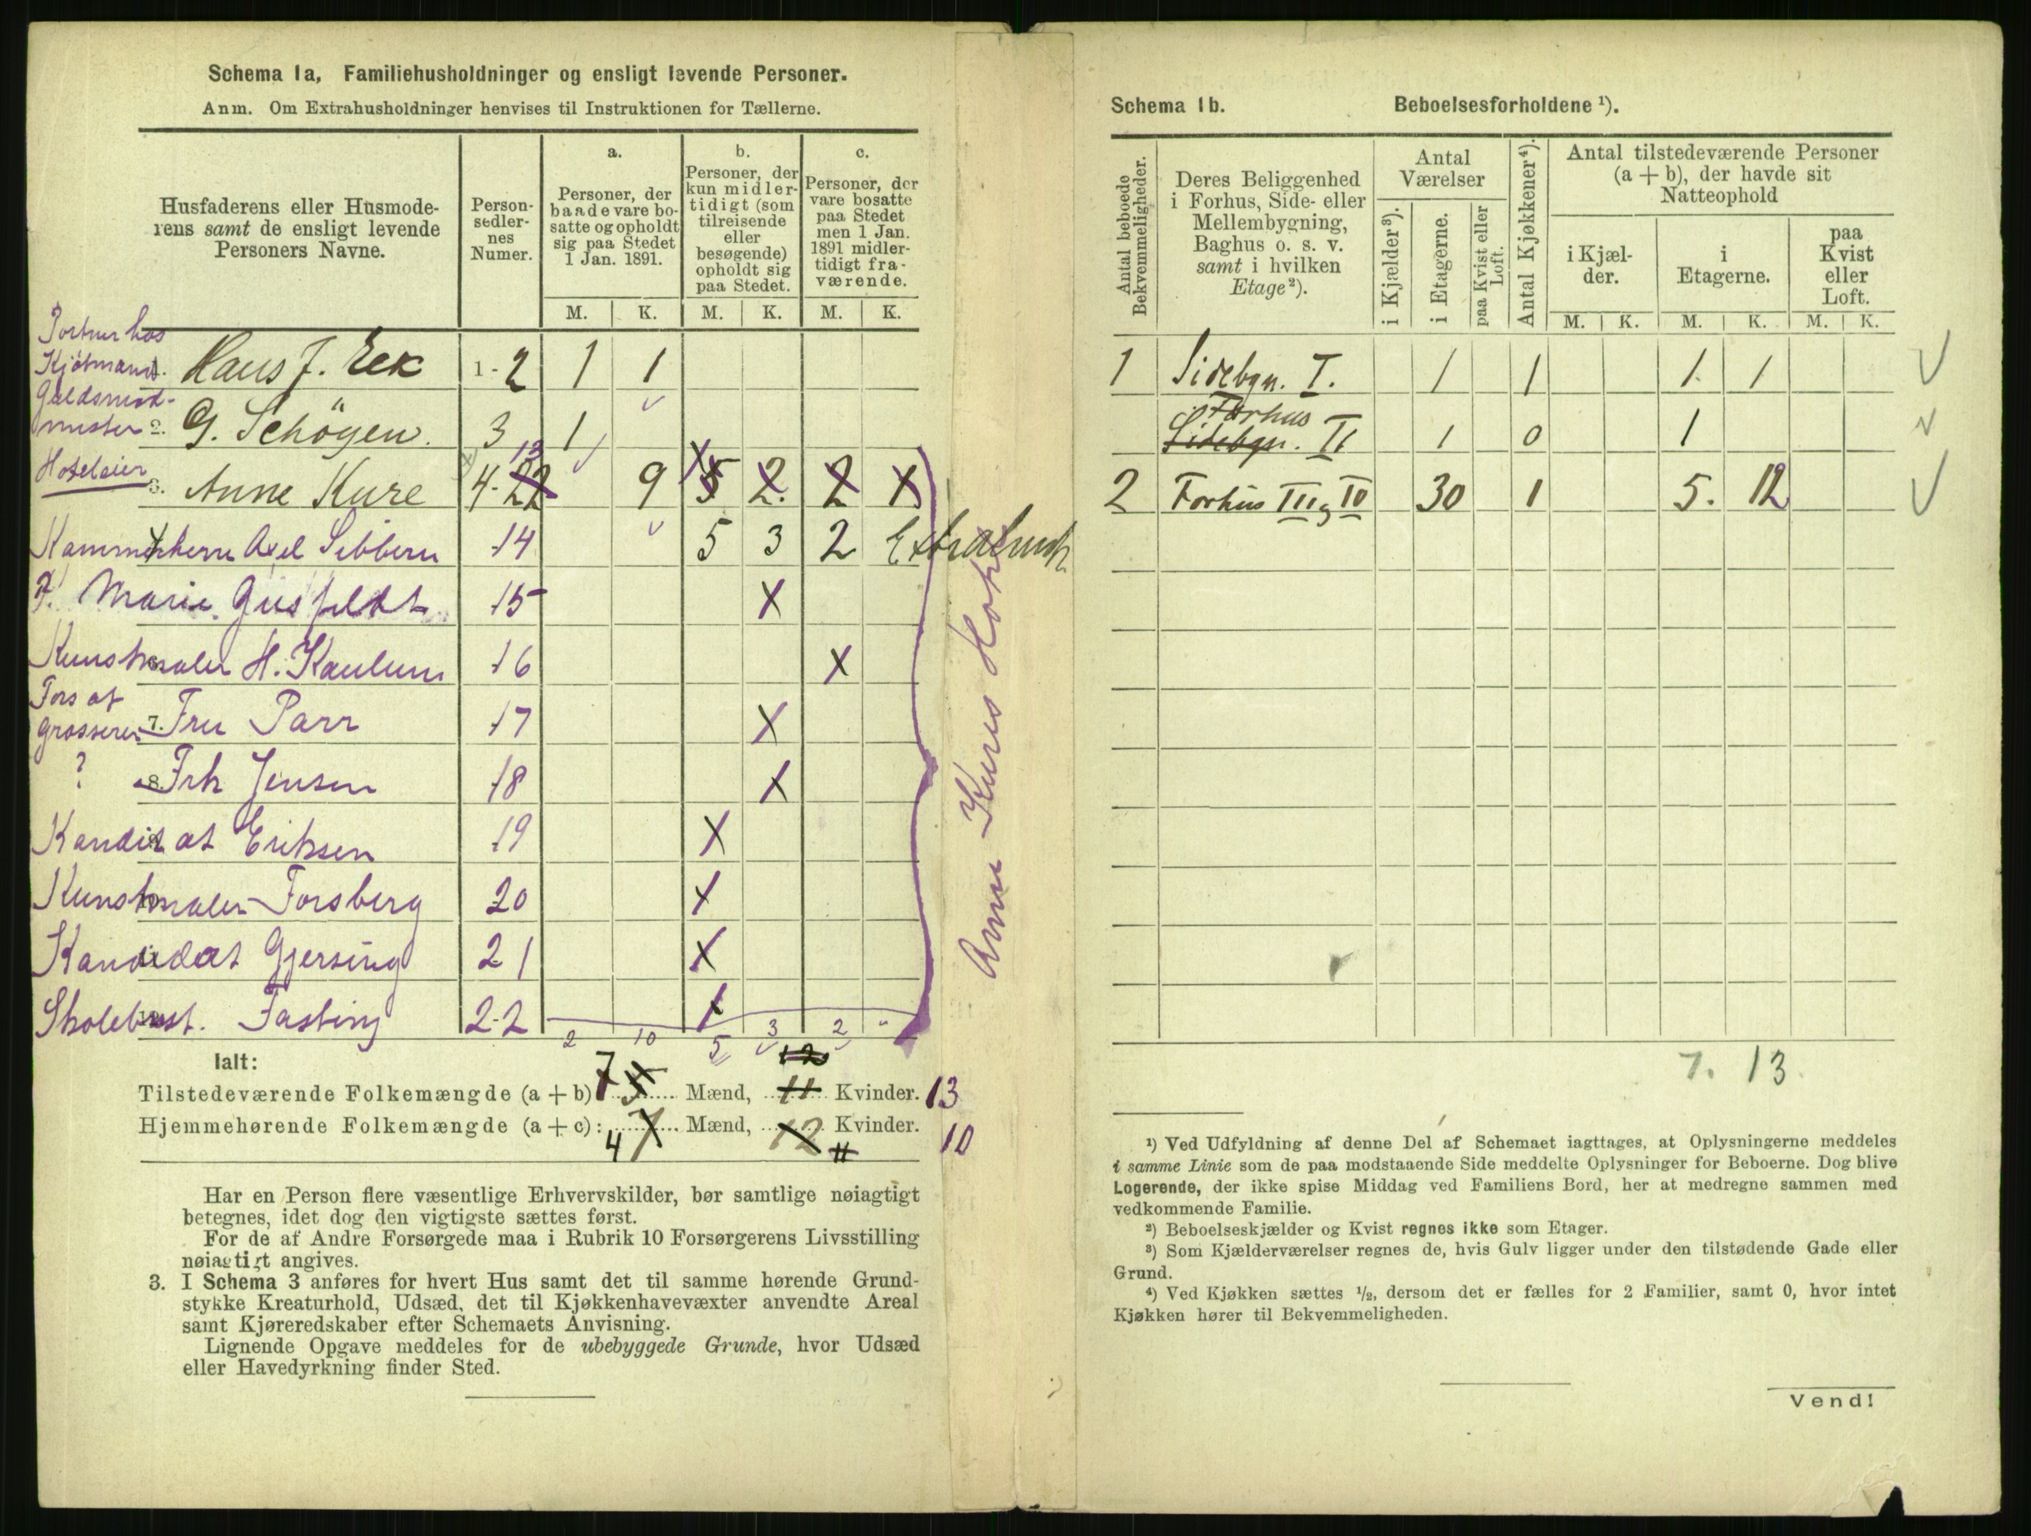 Schema 1a, Familiehusholdninger og ensligt levende Personer.
Anm. Om Extrahusholdninger henvises til Instruktionen for Tællerne.
Husfaderens eller Husmoderens samt de ensligt levende Personers Navne.
Personsedlernes Numer.
a.
Personer, der baade vare bosatte og opholdt sig paa Stedet 1 Jan. 1891.
b.
Personer, der kun midlertidigt (som tilreisende eller besøgende) opholdt sig paa Stedet.
c.
Personer, der vare bosatte paa Stedet men 1 Jan. 1891 midlertidigt fraværende.
M. K. M. K. M. K.
Portner hos
Kjøtmand. Hans J. Eek 1-2 1 1
Guldsmed-
mester 2. G. Schöyen. 3 1
Hoteleier 3. Anne Kure 4-22 13 9 5 2. 2 X
Kammerherre Axel Sibbern 14 5 3 2 Extrahush
F. Marie Gusfeldt 15 X
Kunstmaler H. Kaulum 16 X
Fors at
Grosserer 7. Fru Parr 17 X
? 8. Frk Jensen 18 X
Kandidat Eriksen 19 X
Kunstmaler Forsberg 20 X
Kandidat Gjersing 21 X
Skolebest. Fasting 22 1
2 10 5 3 2 "
Anne Kures Hotel
Ialt:
Tilstedeværende Folkemængde (a + b) 7 5 Mænd, 12 11 Kvinder. 13
Hjemmehørende Folkemængde (a + c): 4 7 Mænd, 12 11 Kvinder. 10
Har en Person flere væsentlige Erhvervskilder, bør samtlige nøiagtigt
betegnes, idet dog den vigtigste sættes først.
For de af Andre Forsørgede maa i Rubrik 10 Forsørgerens Livsstilling
nøiagtigt angives.
3. I Schema 3 anføres for hvert Hus samt det til samme hørende Grund-
stykke Kreaturhold, Udsæd, det til Kjøkkenhavevæxter anvendte Areal
samt Kjøreredskaber efter Schemaets Anvisning.
Lignende Opgave meddeles for de ubebyggede Grunde, hvor Udsæd
eller Havedyrkning finder Sted.
Schema 1b. Beboelsesforholdene ¹).
Antal beboede Bekvemmeligheder.
Deres Beliggenhed i Forhus, Side- eller Mellembygning, Baghus o. s. v. samt i hvilken Etage²).
Antal Værelser
i Kjælder³).
i Etagerne.
paa Kvist eller Loft.
Antal Kjøkkener⁴).
Antal tilstedeværende Personer (a + b), der havde sit Natteophold
i Kjælder.
i Etagerne.
paa Kvist eller Loft.
M. K. M. K. M. K.
1 Sidebgn. I. 1 1 1. 1
Forhus
Sidebgn. II 1 0 1
2 Forhus III og IV 30 1 5. 12
7. 13.
¹) Ved Udfyldning af denne Del af Schemaet iagttages, at Oplysningerne meddeles
i samme Linie som de paa modstaaende Side meddelte Oplysninger for Beboerne. Dog blive
Logerende, der ikke spise Middag ved Familiens Bord, her at medregne sammen med
vedkommende Familie.
²) Beboelseskjælder og Kvist regnes ikke som Etager.
³) Som Kjælderværelser regnes de, hvis Gulv ligger under den tilstødende Gade eller
Grund.
⁴) Ved Kjøkken sættes ½, dersom det er fælles for 2 Familier, samt 0, hvor intet
Kjøkken hører til Bekvemmeligheden.
Vend!